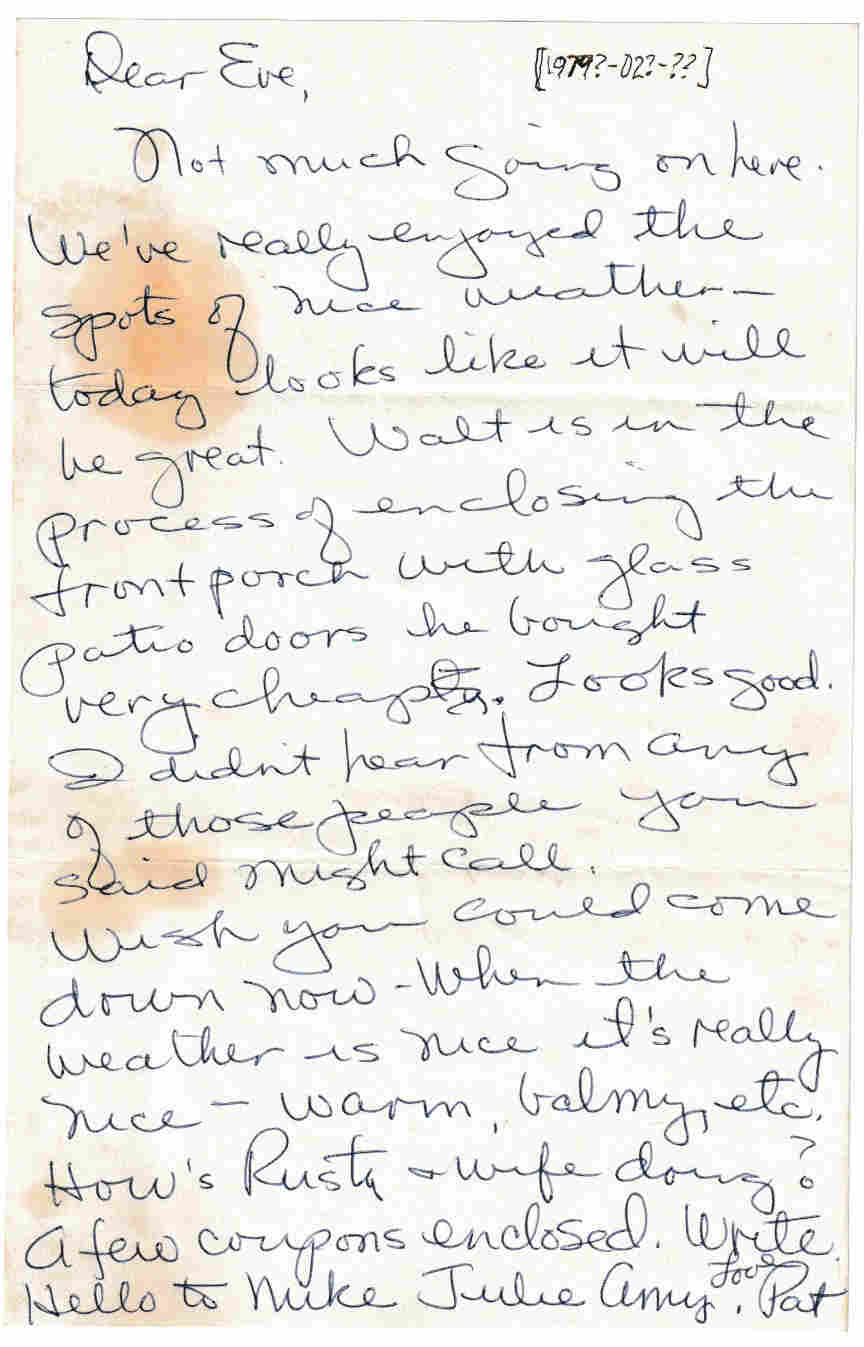 Dear Eve,
[1979?-02?-??]
Not much going on here.
We've really enjoyed the
spots of nice weather—
today looks like it will
be great. Walt is in the
process of enclosing the
front porch with glass
patio doors he bought
very cheaply. Looks good.
I didn't hear from any
of those people you
said might call.
Wish you could come
down now - When the
weather is nice it's really
nice — warm, balmy, etc.
How's Rusty & wife doing?
A few coupons enclosed. Write.
Hello to Mike Julie Amy. Love Pat